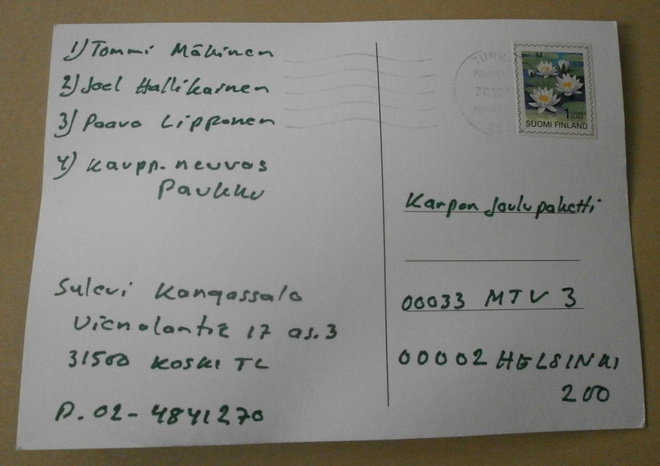 1) Tommi Mäkinen
2) Joel Hallikainen
3) Paavo Lipponen
4) Kaupp. neuvos
Paukku
Sulevi Kangassalo
Vienolantie 17 as. 3
31500 KOSKI TL
P. 02-4841270
TURKU
1
SUOMI FINLAND
Karpon Joulupaketti
00033 MTV 3
00002 HELSINKI
200